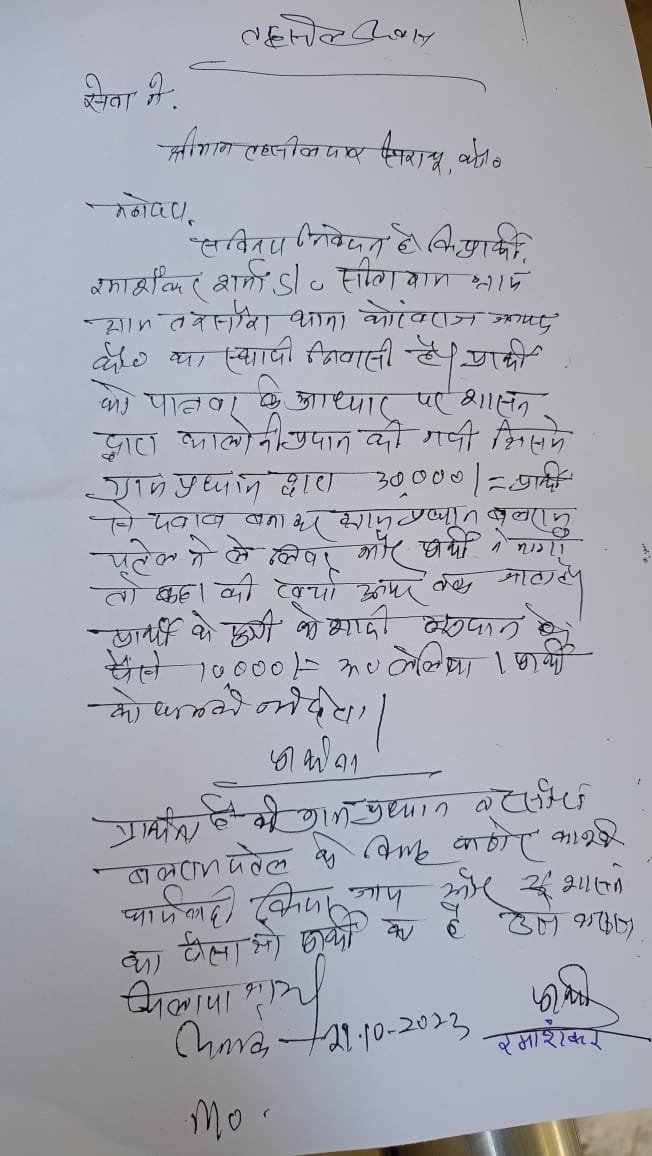 तहसील दिवस
सेवा में.
श्रीमान तहसीलदार सिराथू, कौ०
महोदय,
सविनय निवेदन है कि प्रार्थी,
रमाशंकर शर्मा S/o सीताराम
ग्राम थाना कोखराज जनपद
कौ० का स्थायी निवासी है। प्रार्थी
को पात्रता के आधार पर शासन
द्वारा कालोनी प्रदान की गयी जिसमे
ग्राम प्रधान द्वारा 30,000/= प्रार्थी
से दवाव बनाकर ग्राम प्रधान बलराम
पटेल ने ले लिया और प्रार्थी ने मांगा
तो कहा की रूपया ऊपर तक जाता है।
प्रार्थी के
पैसे 10000/= रू० ले लिया। प्रार्थी
को धमकी भी देता।
प्रार्थना
प्रार्थना है की ग्राम प्रधान
बलराम पटेल के विरूद्ध कठोर कानूनी
कार्यवाही किया जाय और शासन
का पैसा जो प्रार्थी का है उसे
दिलाया जाय
दिनांक - 21-10-2023 प्रार्थी
रमाशंकर
Mo.